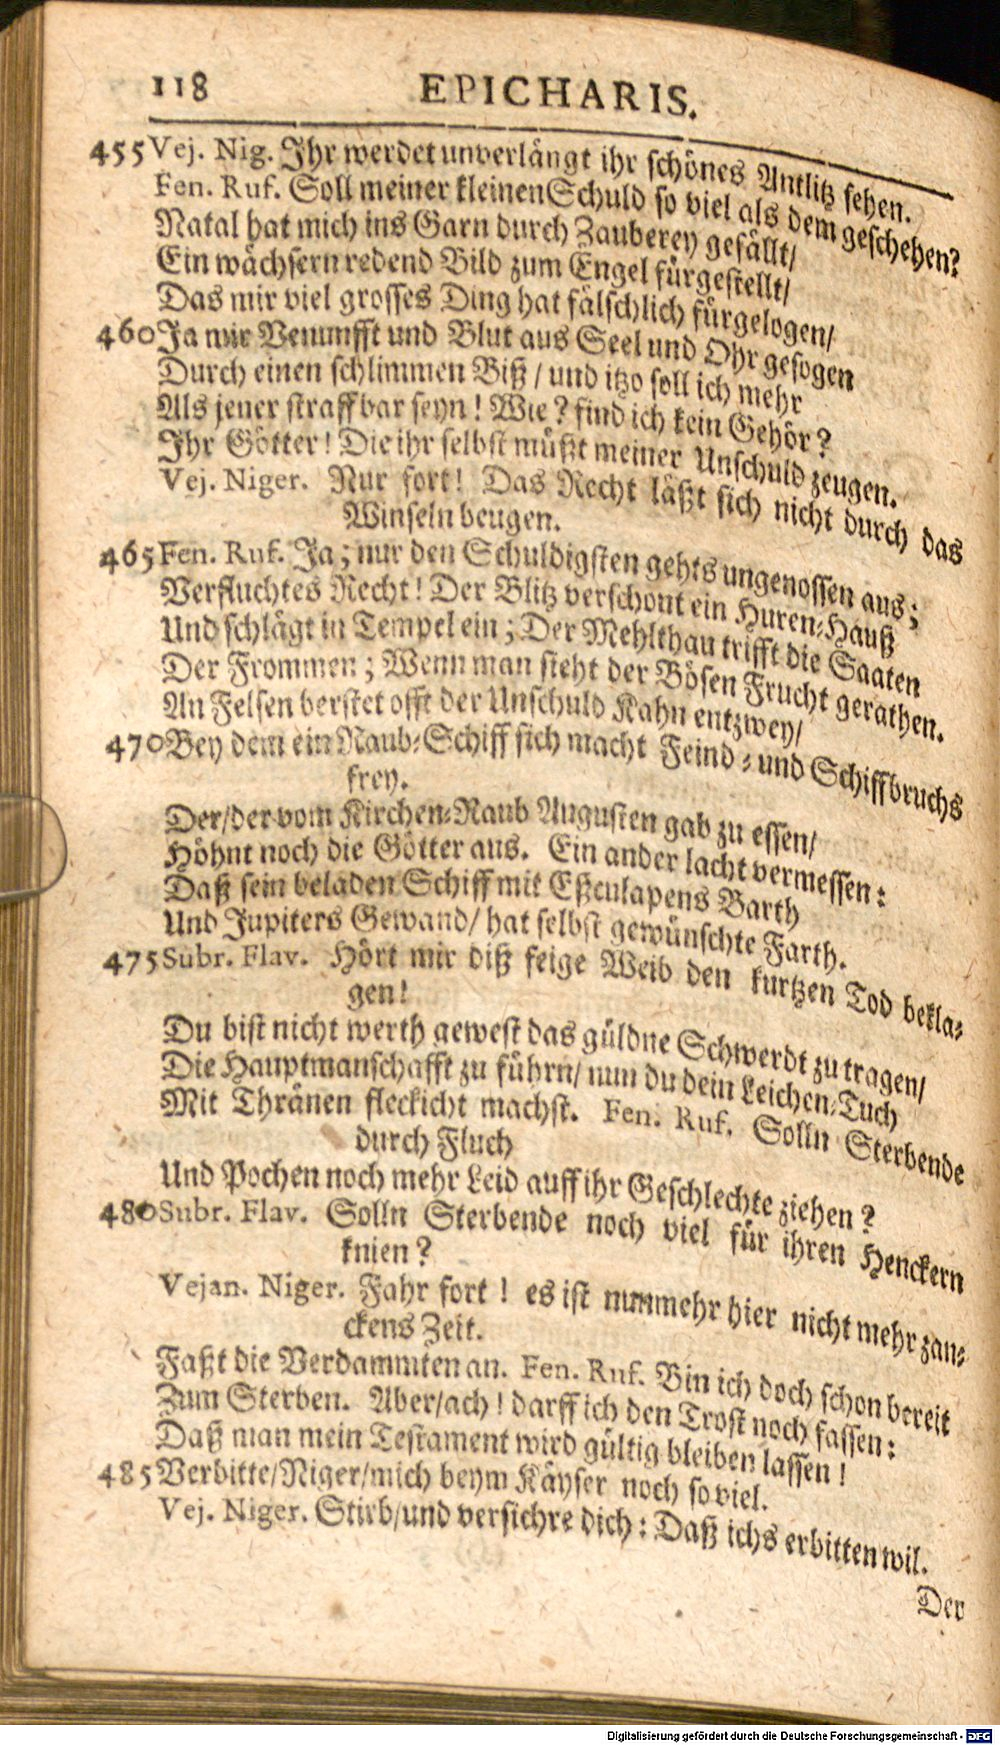 118 EPICHARIS.
455 Vej. Nig. Ihr werdet unverlängt ihr schönes Antlitz sehen.
Fen. Ruf. Soll meiner kleinen Schuld so viel als dem geschehen?
Natal hat mich ins Garn durch Zauberey gefällt/
Ein wächsern redend Bild zum Engel fürgestellt/
Das mir viel grosses Ding hat fälschlich fürgelogen/
460 Ja mir Vernunfft und Blut aus Seel und Ohr gesogen
Durch einen schlimmen Biß / und itzo soll ich mehr
Als jener straffbar seyn! Wie? find ich kein Gehör?
Ihr Götter! Die ihr selbst müßt meiner Unschuld zeugen.
Vej. Niger. Nur fort! Das Recht läßt sich nicht durch das
Winseln beugen.
465 Fen. Ruf. Ja; nur den Schuldigsten gehts ungenossen aus;
Verfluchtes Recht! Der Blitz verschont ein Huren-Hauß
Und schlägt in Tempel ein; Der Mehlthau trifft die Saaten
Der Frommen; Wenn man sieht der Bösen Frucht gerathen.
An Felsen berstet offt der Unschuld Kahn entzwey/
470 Bey dem ein Raub-Schiff sich macht Feind- und Schiffbruchs
frey.
Der/der vom Kirchen-Raub Augusten gab zu essen/
Höhnt noch die Götter aus. Ein ander lacht vermessen:
Daß sein beladen Schiff mit Eßculapens Barth
Und Jupiters Gewand/ hat selbst gewünschte Farth.
475 Subr. Flav. Hört mir diß feige Weib den kurtzen Tod bekla-
gen!
Du bist nicht werth gewest das güldne Schwerdt zu tragen/
Die Hauptmanschafft zu führn/ nun du dein Leichen-Tuch
Mit Thränen fleckicht machst. Fen. Ruf. Solln Sterbende
durch Fluch
Und Pochen noch mehr Leid auff ihr Geschlechte ziehen?
480 Subr. Flav. Solln Sterbende noch viel für ihren Henckern
knien?
Vejan. Niger. Fahr fort! es ist nunmehr hier nicht mehr zan-
ckens Zeit.
Faßt die Verdammten an. Fen. Ruf. Bin ich doch schon bereit
Zum Sterben. Aber/ach! darff ich den Trost noch fassen:
Daß man mein Testament wird gültig bleiben lassen!
485 Verbitte/Niger/mich beym Käyser noch so viel.
Vej. Niger. Stirb/und versichre dich: Daß ichs erbitten wil.
Der
Digitalisierung gefördert durch die Deutsche Forschungsgemeinschaft - DFG